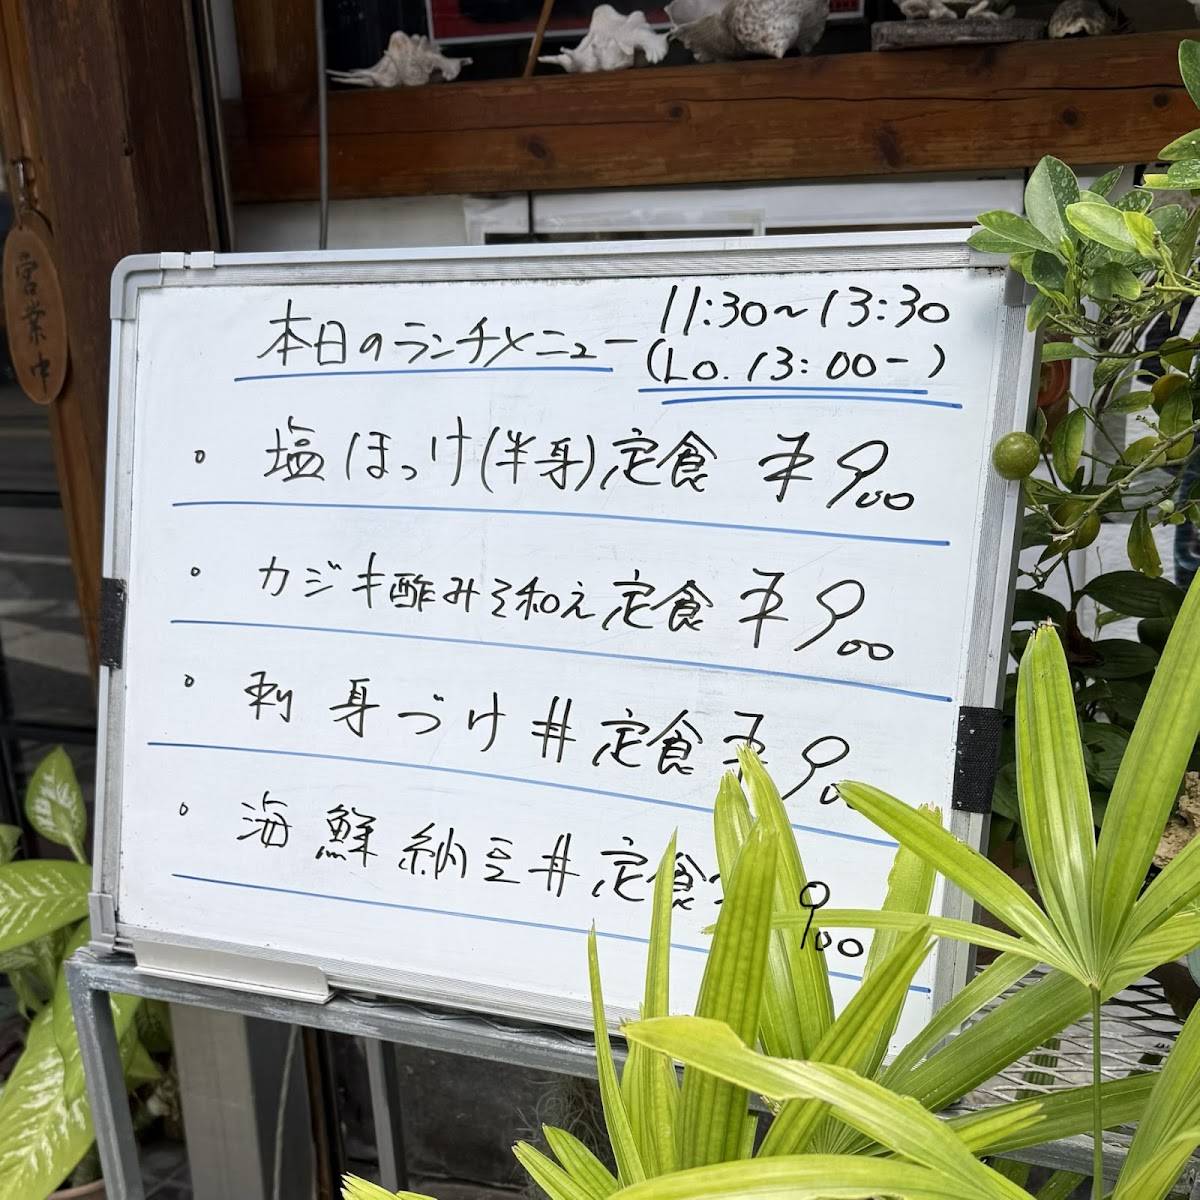 営業中
本日のランチメニュー 11:30~13:30
(Lo. 13:00-)
・塩ほっけ(半身)定食 ¥900
・カジキ酢みそ和え定食 ¥900
・刺身づけ丼定食 ¥900
・海鮮納豆丼定食 900